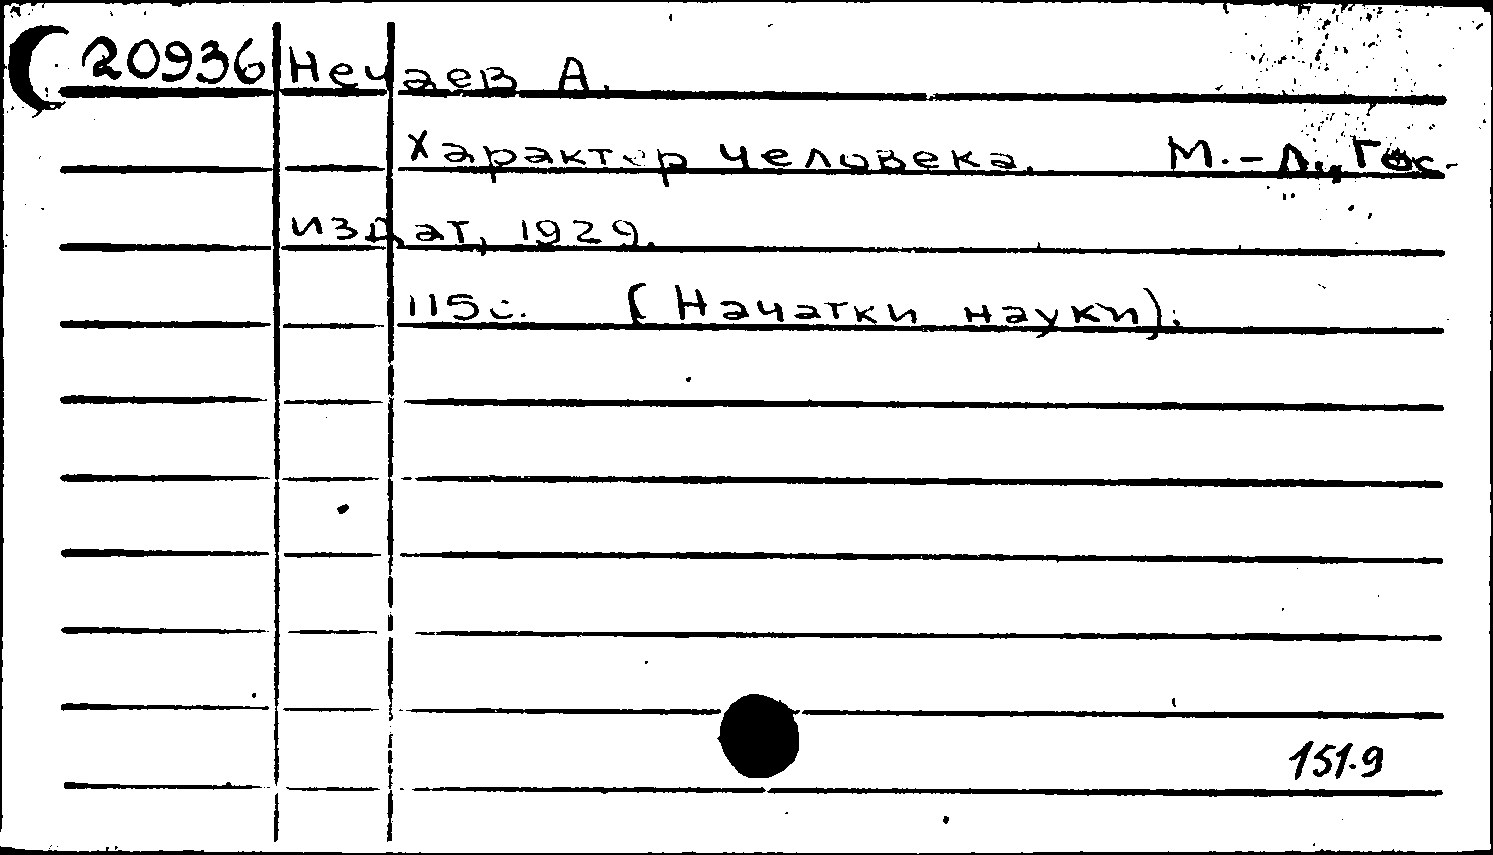 20936 Нечаев А.
Характер человека. М.-Л., Гос.
издат, 1929.
115с. (Начатки науки).
151.9